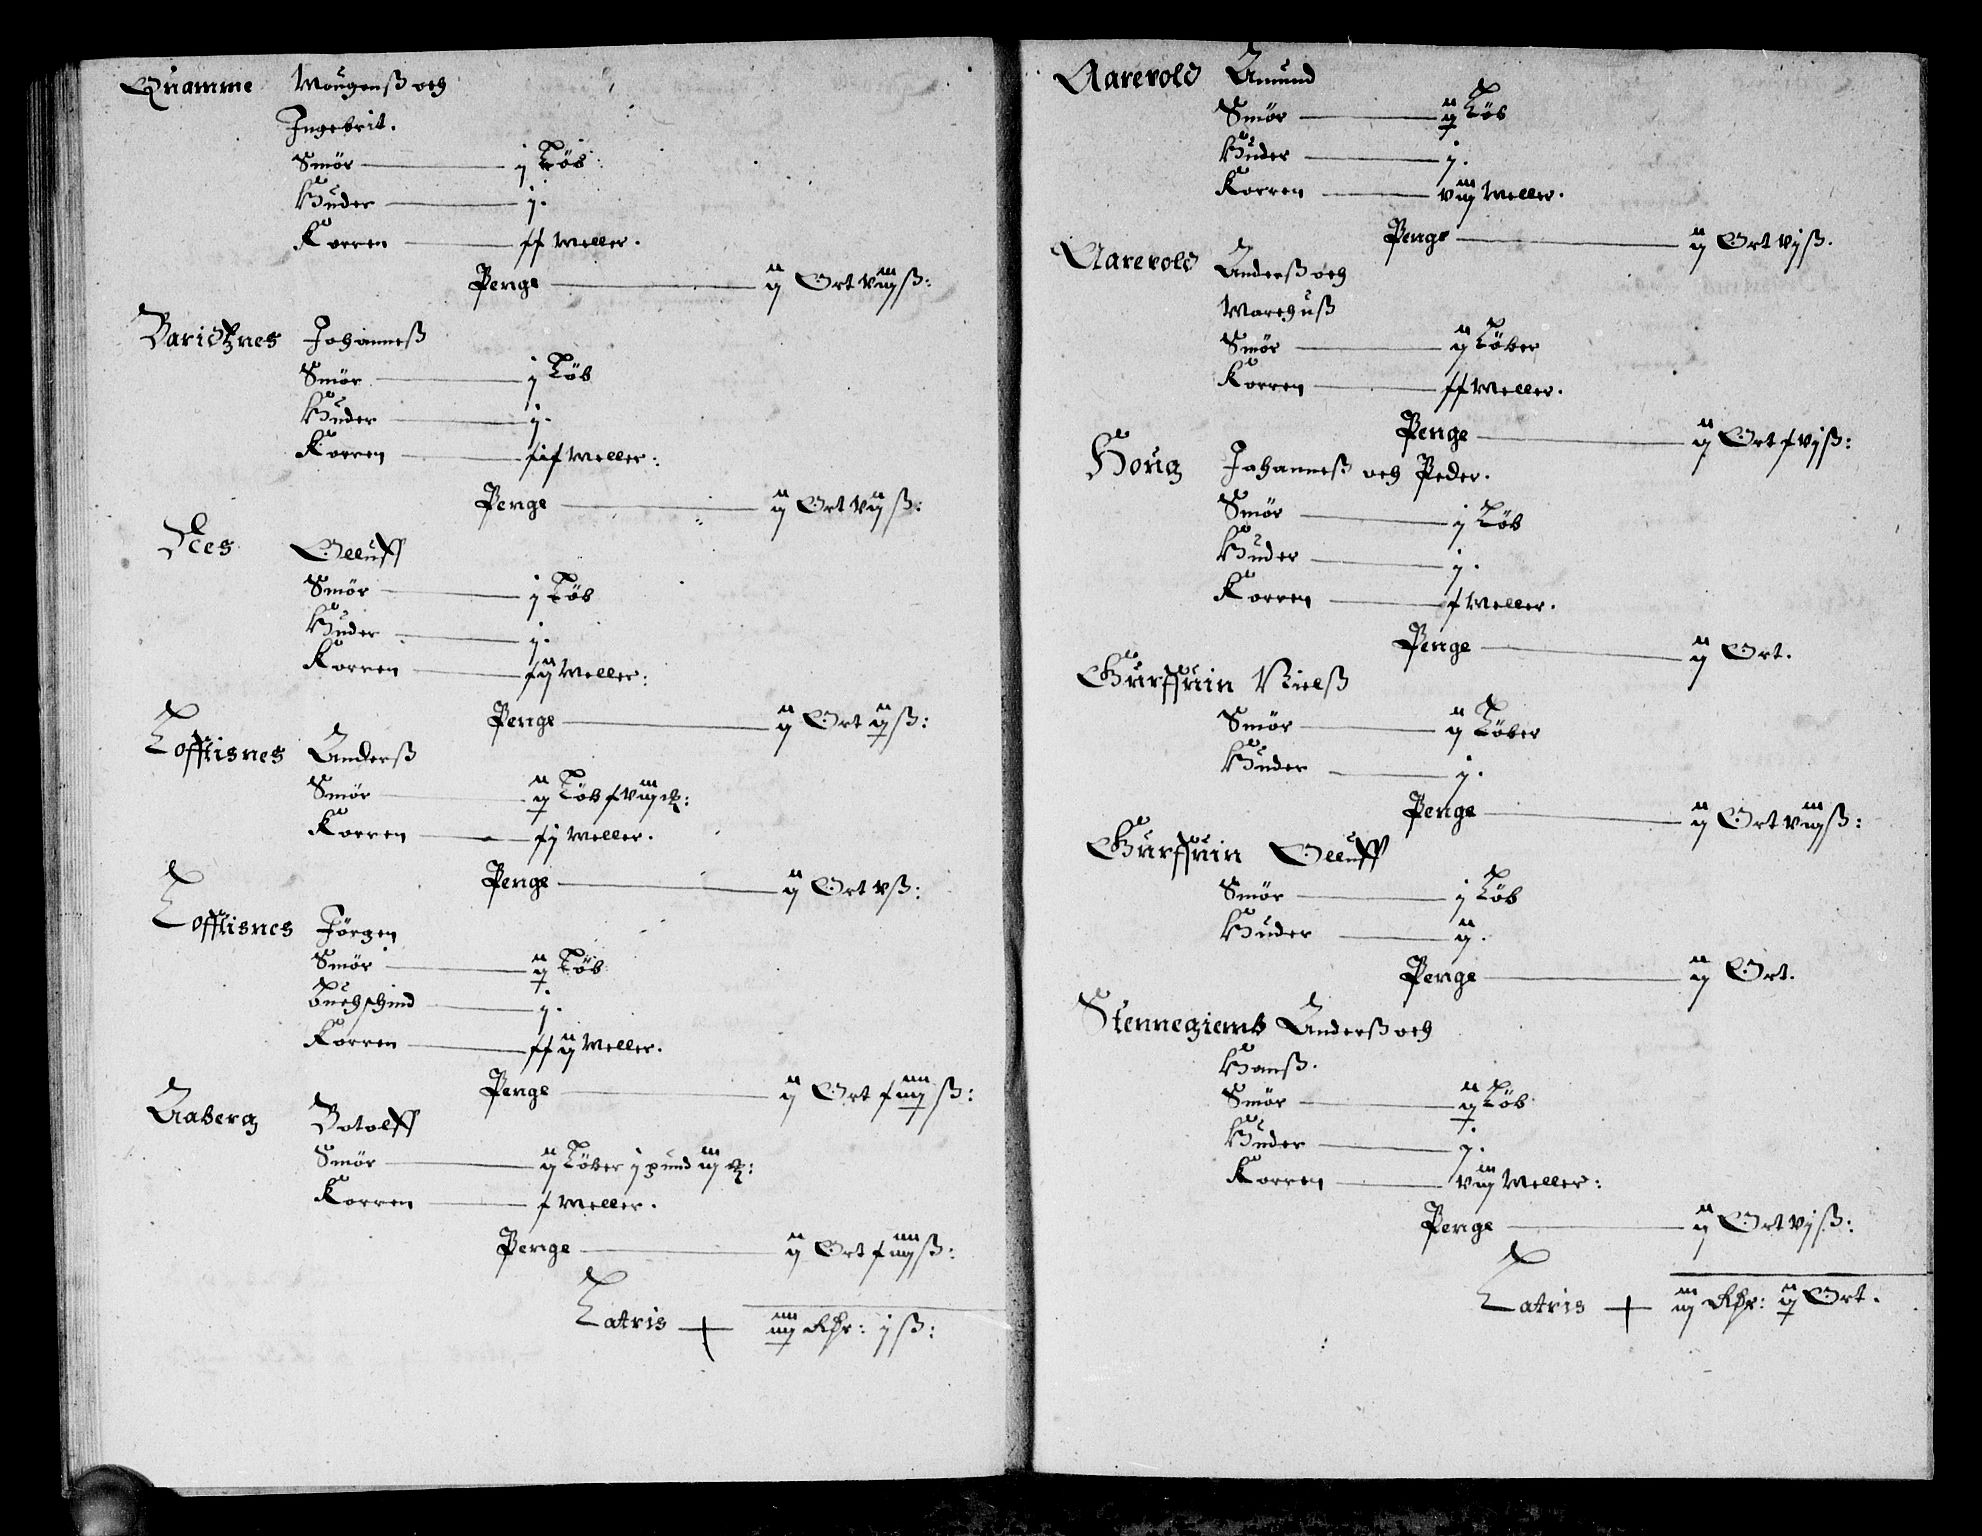 Quamme Mougenß och
Ingebrit.
Smör — j Löb
Huder — j.
Korren — xx Meller.
Penge — ij Ort viijß:
Baridtznes Johanneß
Smör — j Löb
Huder — j.
Korren — Meller:
Penge — ij Ort vijß:
Nes Olluff
Smör — j Löb
Huder — j.
Korren — xij Meller:
Penge — ij Ort ijß:
Lofftisnes Anderß
Smör — ij Löb xviij
Korren — xj Meller.
Penge — ij Ort vß:
Lofftisnes Jörgen
Smör — ij Löb
Buchschind — j.
Korren — xxij Meller.
Penge — ij Ort xiiijß:
Aaberg Botolff
Smör — ij Löber j pund iij
Korren — x Meller.
Penge — ij Ort xiiijß:
Latris + iiij Rdr: jß:
Aarevold Amund
Smör — ij Löb
Huder — j.
Korren — viij Meller.
Penge — ij Ort vjß.
Aarevold Anderß och
Marchuß
Smör — ij Löber
Korren — xx Meller.
Penge — ij Ort xvjß:
Houg Johanneß och Peder.
Smör — j Löb
Huder — j.
Korren — x Meller.
Penge — ij Ort.
Nielß
Smör — ij Löber
Huder — j.
Penge — ij Ort viijß:
Olluff
Smör — j Löb
Huder — ij.
Penge — ij Ort.
Stennegiemb Anderß och
Hanß.
Smör — ij Löb
Huder — j.
Korren — viij Meller:
Penge — ij Ort vjß:
Latris + iij Rdr: ij Ort.